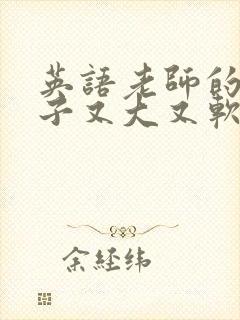 英語老師的
子又大又軟
余経纬